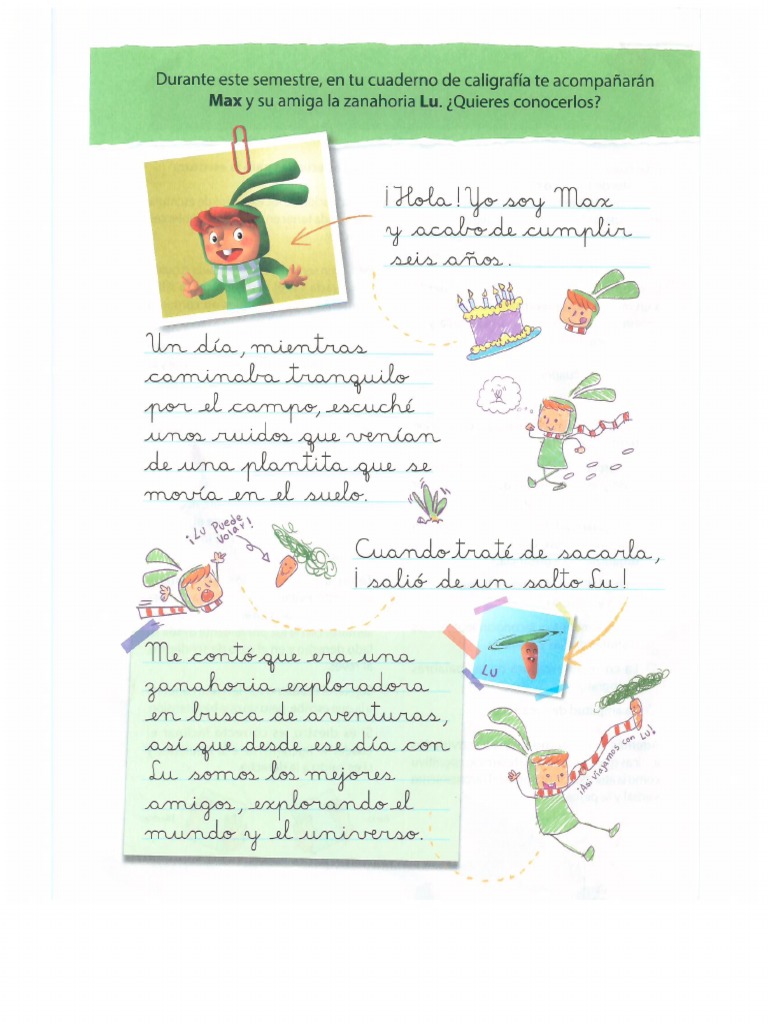 Durante este semestre, en tu cuaderno de caligrafía te acompañarán
Max y su amiga la zanahoria Lu. ¿Quieres conocerlos?
¡Hola! Yo soy Max
y acabo de cumplir
seis años.
Un día, mientras
caminaba tranquilo
por el campo, escuché
unos ruidos que venían
de una plantita que se
movía en el suelo.
¡Lu Puede
Volar!
Cuando traté de sacarla,
¡salió de un salto Lu!
LU
Me contó que era una
zanahoria exploradora
en busca de aventuras,
así que desde ese día con
Lu somos los mejores
amigos, explorando el
mundo y el universo.
¡Así viajamos con Lu!